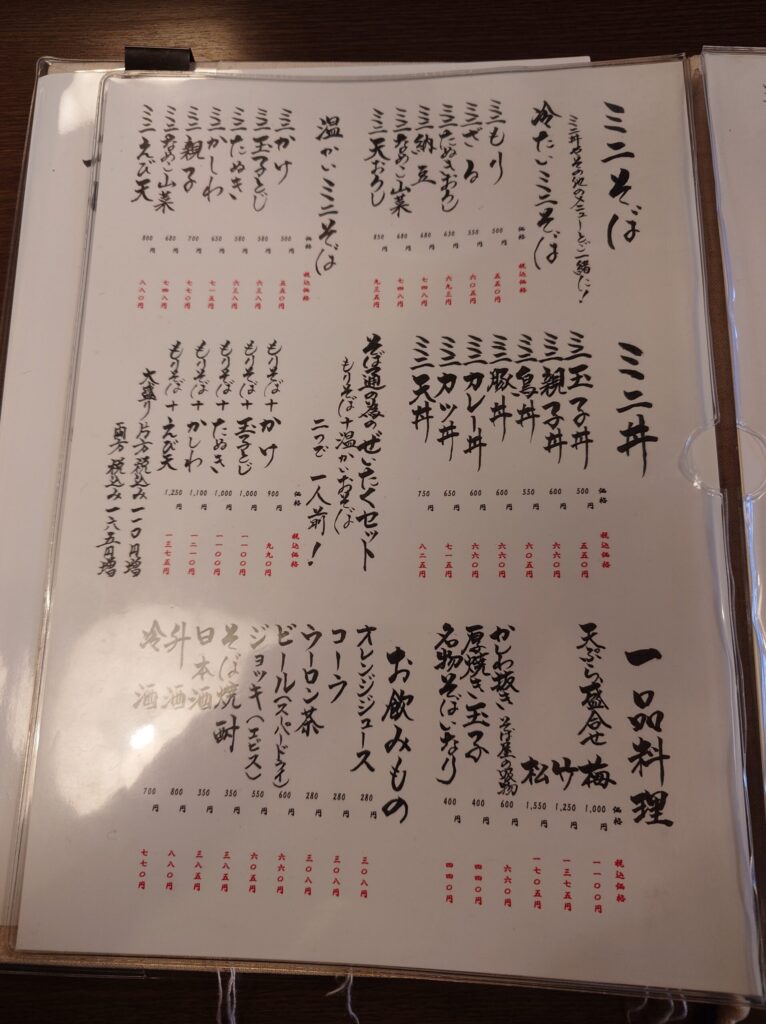 ミニそば
ミニ丼やその他のメニューとご一緒に!
冷たいミニそば
価格 税込価格
ミニもり 500円 五五〇円
ミニざる 550円 六〇五円
ミニたぬきおろし 630円 六九三円
ミニ納豆 680円 七四八円
ミニなめこ山菜 680円 七四八円
ミニ天おろし 850円 九三五円
温かいミニそば
価格 税込価格
ミニかけ 500円 五五〇円
ミニ玉子とじ 580円 六三八円
ミニたぬき 580円 六三八円
ミニかしわ 650円 七一五円
ミニ親子 700円 七七〇円
ミニなめこ山菜 680円 七四八円
ミニえび天 800円 八八〇円
ミニ丼
価格 税込価格
ミニ玉子丼 500円 五五〇円
ミニ親子丼 600円 六六〇円
ミニ鳥丼 550円 六〇五円
ミニ豚丼 600円 六六〇円
ミニカレー丼 600円 六六〇円
ミニカツ丼 650円 七一五円
ミニ天丼 750円 八二五円
そば通の為のぜいたくセット
もりそば+温かいおそば
二つで 一人前!
価格 税込価格
もりそば+かけ 900円 九九〇円
もりそば+玉子とじ 1,000円 一一〇〇円
もりそば+たぬき 1,000円 一一〇〇円
もりそば+かしわ 1,100円 一二一〇円
もりそば+えび天 1,250円 一三七五円
大盛り 片方 税込み 一一〇円増
両方 税込み 一六五円増
一品料理
価格 税込価格
天ぷら盛合せ 梅 1,000円 一一〇〇円
竹 1,250円 一三七五円
松 1,550円 一七〇五円
かしわ抜き そば屋の吸物 600円 六六〇円
厚焼き玉子 400円 四四〇円
名物そばいなり 400円 四四〇円
お飲みもの
オレンジジュース 280円 三〇八円
コーラ 280円 三〇八円
ウーロン茶 280円 三〇八円
ビール(スーパードライ) 600円 六六〇円
ジョッキ(エビス) 550円 六〇五円
そば焼酎 350円 三八五円
日本酒 350円 三八五円
升酒 800円 八八〇円
冷酒 700円 七七〇円